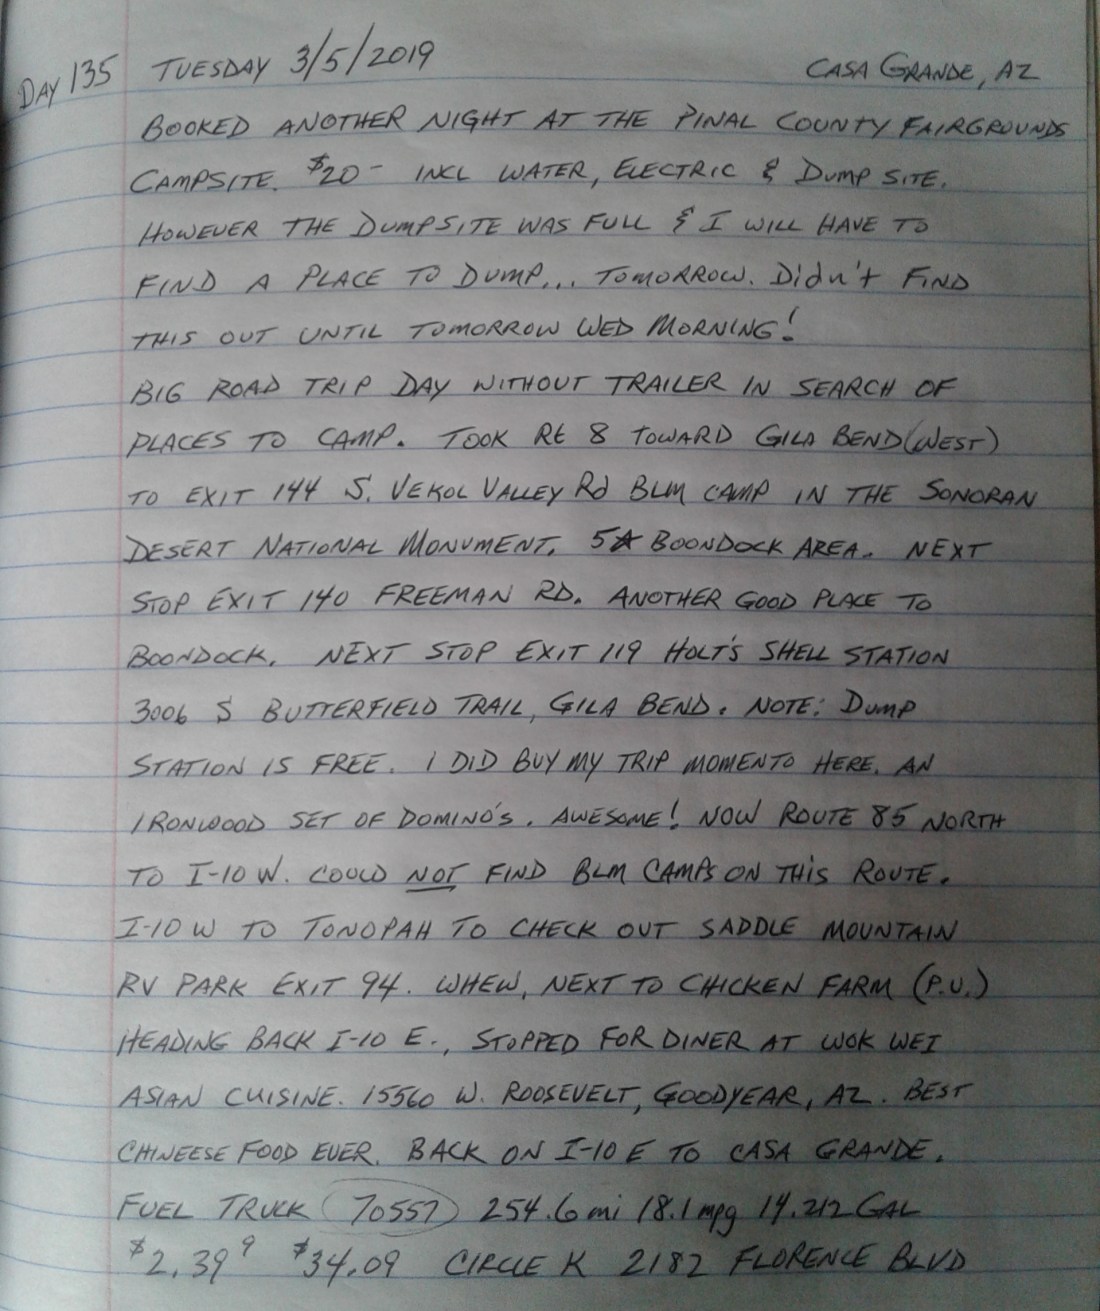 DAY 135 TUESDAY 3/5/2019 CASA GRANDE, AZ
BOOKED ANOTHER NIGHT AT THE PINAL COUNTY FAIRGROUNDS
CAMPSITE. $20- INCL WATER, ELECTRIC & DUMP SITE.
HOWEVER THE DUMPSITE WAS FULL & I WILL HAVE TO
FIND A PLACE TO DUMP... TOMORROW. Didn't FIND
THIS OUT UNTIL TOMORROW WED MORNING!
BIG ROAD TRIP DAY WITHOUT TRAILER IN SEARCH OF
PLACES TO CAMP. TOOK Rt 8 TOWARD GILA BEND (WEST)
TO EXIT 144 S. VEKOL VALLEY Rd BLM CAMP IN THE SONORAN
DESERT NATIONAL MONUMENT. 5★ BOONDOCK AREA. NEXT
STOP EXIT 140 FREEMAN RD. ANOTHER GOOD PLACE TO
BOONDOCK. NEXT STOP EXIT 119 HOLT'S SHELL STATION
3006 S BUTTERFIELD TRAIL, GILA BEND. NOTE: DUMP
STATION IS FREE. I DID BUY MY TRIP MOMENTO HERE. AN
IRONWOOD SET OF DOMINO'S. AWESOME! NOW ROUTE 85 NORTH
TO I-10 W. COULD NOT FIND BLM CAMPS ON THIS ROUTE.
I-10 W TO TONOPAH TO CHECK OUT SADDLE MOUNTAIN
RV PARK EXIT 94. WHEW, NEXT TO CHICKEN FARM (P.U.)
HEADING BACK I-10 E., STOPPED FOR DINER AT WOK WEI
ASIAN CUISINE. 15560 W. ROOSEVELT, GOODYEAR, AZ. BEST
CHINEESE FOOD EVER. BACK ON I-10 E TO CASA GRANDE.
FUEL TRUCK 70557 254.6 mi 18.1 mpg 14.212 GAL
$2.39⁹ $34.09 CIRCLE K 2182 FLORENCE BLVD